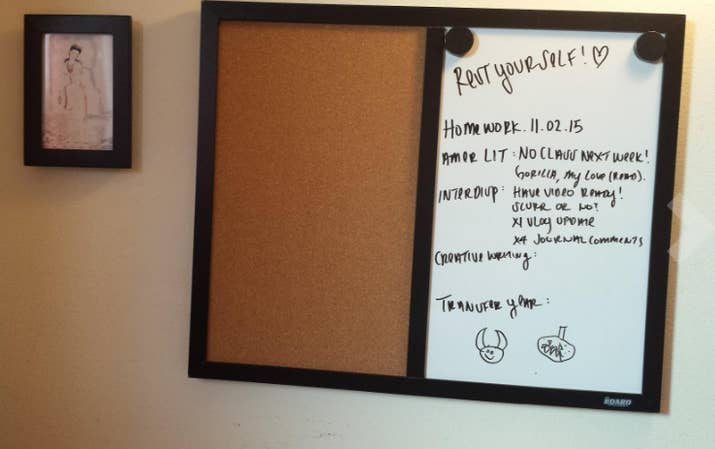 REST YOURSELF! ♡
HOMEWORK. 11.02.15
AMER LIT: NO CLASS NEXT WEEK!
GORILLA, MY LOVE (READ).
INTERDISP: HAVE VIDEO READY!
SLURR OR NO?
X1 VLOG UPDATE
X4 JOURNAL COMMENTS
CREATIVE WRITING:
TRANSFER YEAR:
BOARD